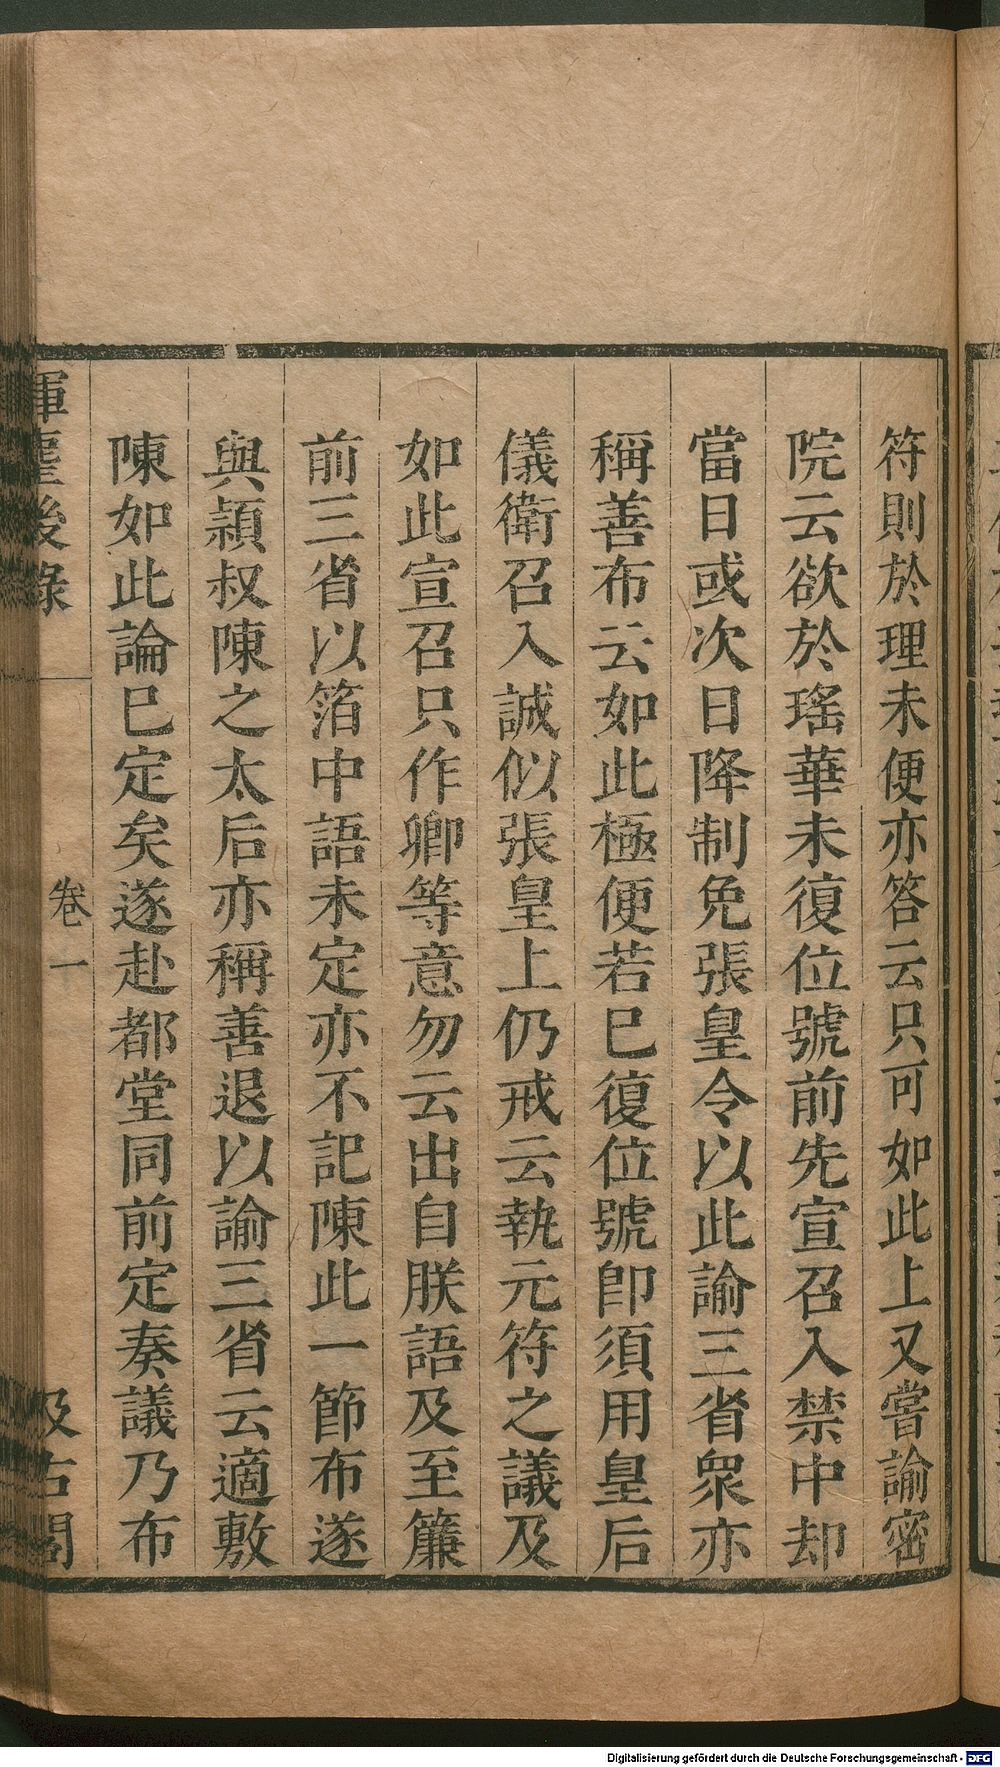 符則於理未便亦答云只可如此上又嘗諭密
院云欲於瑤華未復位號前先宣召入禁中却
當日或次日降制免張皇令以此諭三省眾亦
稱善布云如此極便若巳復位號卽須用皇后
儀衛召入誠似張皇上仍戒云執元符之議及
如此宣召只作卿等意勿云出自朕語及至簾
前三省以箔中語未定亦不記陳此一節布遂
與潁叔陳之太后亦稱善退以諭三省云適敷
陳如此論巳定矣遂赴都堂同前定奏議乃布
揮麈後錄
卷一
汲古閣
Digitalisierung gefördert durch die Deutsche Forschungsgemeinschaft - DFG